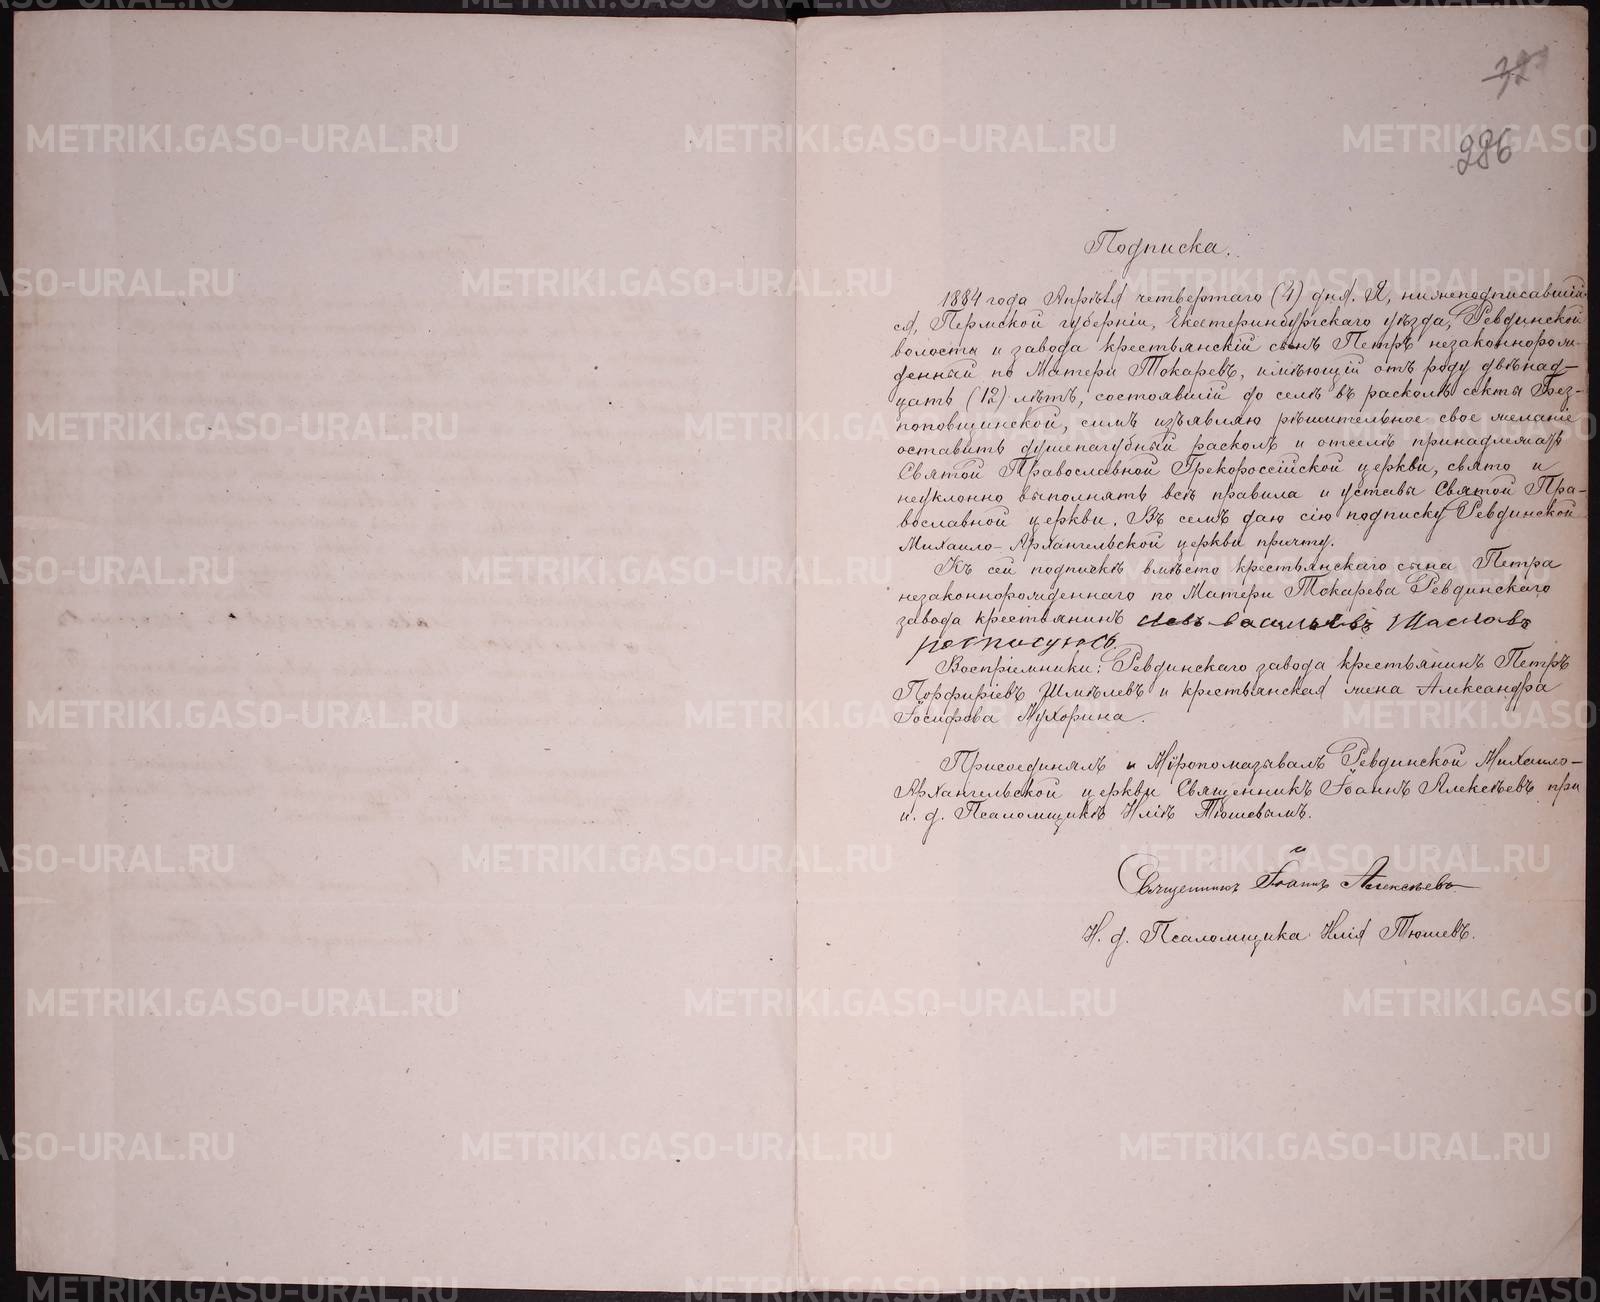 286
Подписка.
1884 года Апрѣля четвертаго (4) дня. Я, нижеподписавшій
ся, Пермской губерніи, Екатеринбургскаго уѣзда, Ревдинской
волости и завода крестьянскій сынъ Петръ незаконнорож-
денный по Матери Токаревъ, имѣющій отъ роду двѣнад-
цать (12) лѣтъ, состоявшій до селѣ въ расколѣ секты Без-
поповщинской, симъ изъявляю рѣшительное свое желаніе
оставить душепагубный расколъ и отселѣ принадлежать
Святой Православной Грекороссійской церкви, свято и
неуклонно выполнять всѣ правила и уставы Святой Пра-
вославной церкви. Въ семъ даю сію подписку Ревдинской
Михаило-Архангельской церкви причту.
Къ сей подпискѣ вмѣсто крестьянскаго сына Петра
незаконнорожденнаго по Матери Токарева Ревдинскаго
завода крестьянинъ
росписуюсь.
Воспріемники: Ревдинскаго завода крестьянинъ Петръ
Порфиріевъ Шмѣлевъ и крестьянская жена Александра
Іосифова Мухорина.
Присоединялъ и Мѵропомазывалъ Ревдинской Михаило-
Архангельской церкви Священникъ Іоаннъ Алексѣевъ при
и. д. Псаломщикѣ Иліѣ Тюшевымъ.
Священникъ Іоаннъ Алексѣевъ
И. д. Псаломщика Илія Тюшевъ.
METRIKI.GASO-URAL.RU